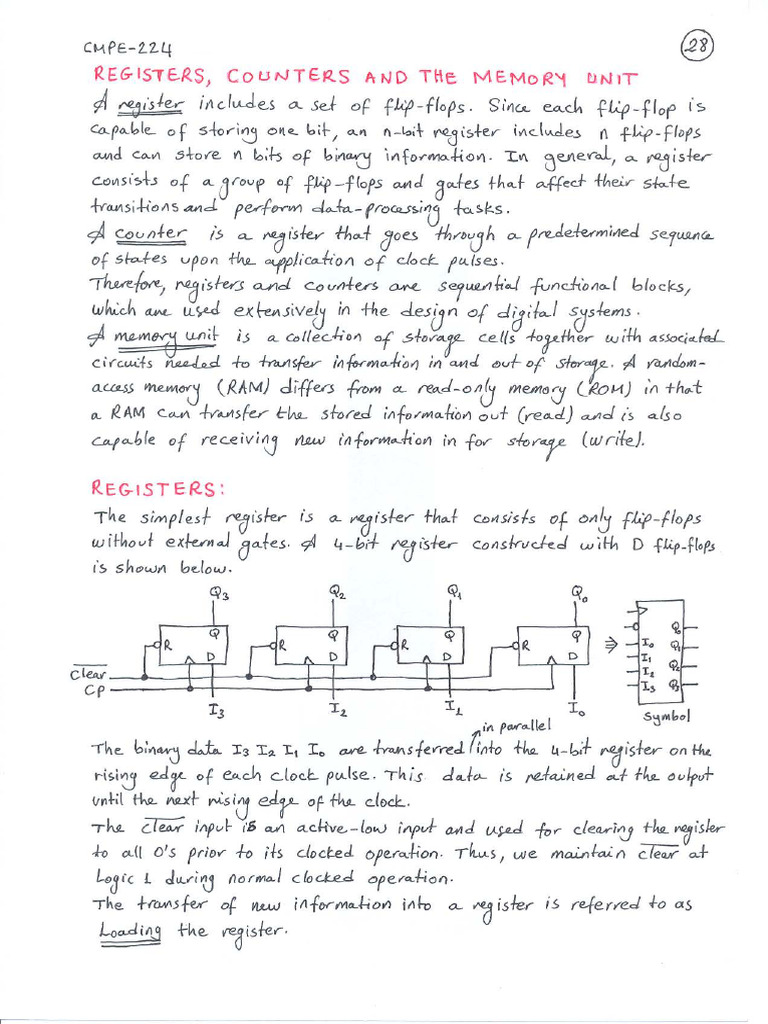 CMPE-224
28
REGISTERS, COUNTERS AND THE MEMORY UNIT
A register includes a set of flip-flops. Since each flip-flop is
capable of storing one bit, an n-bit register includes n flip-flops
and can store n bits of binary information. In general, a register
consists of a group of flip-flops and gates that affect their state
transitions and perform data-processing tasks.
A counter is a register that goes through a predetermined sequence
of states upon the application of clock pulses.
Therefore, registers and counters are sequential functional blocks,
which are used extensively in the design of digital systems.
A memory unit is a collection of storage cells together with associated
circuits needed to transfer information in and out of storage. A random-
access memory (RAM) differs from a read-only memory (ROM) in that
a RAM can transfer the stored information out (read) and is also
capable of receiving new information in for storage (write).
REGISTERS:
The simplest register is a register that consists of only flip-flops
without external gates. A 4-bit register constructed with D flip-flops
is shown below.
Q3 Q2 Q1 Q0
Q Q Q Q Q0
R R R R I0 Q1
D D D D I1 Q2
I2 Q3
I3
C̅l̅e̅a̅r̅
CP
I3 I2 I1 I0 Symbol
in parallel
The binary data I3 I2 I1 I0 are transferred into the 4-bit register on the
rising edge of each clock pulse. This data is retained at the output
until the next rising edge of the clock.
The C̅l̅e̅a̅r̅ input is an active-low input and used for clearing the register
to all 0's prior to its clocked operation. Thus, we maintain C̅l̅e̅a̅r̅ at
Logic 1 during normal clocked operation.
The transfer of new information into a register is referred to as
Loading the register.